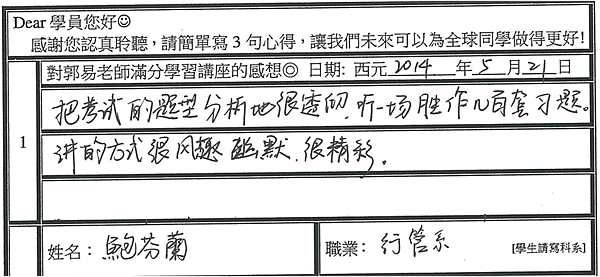 Dear 學員您好☺
感謝您認真聆聽，請簡單寫 3 句心得，讓我們未來可以為全球同學做得更好!
對郭易老師滿分學習講座的感想◎ 日期: 西元 2014 年 5 月 21 日
1
把考试的题型分析地很透彻，听一场胜作几百套习题。
讲的方式很风趣幽默，很精彩。
姓名： 鮑芬蘭
職業： 行管系 [學生請寫科系]